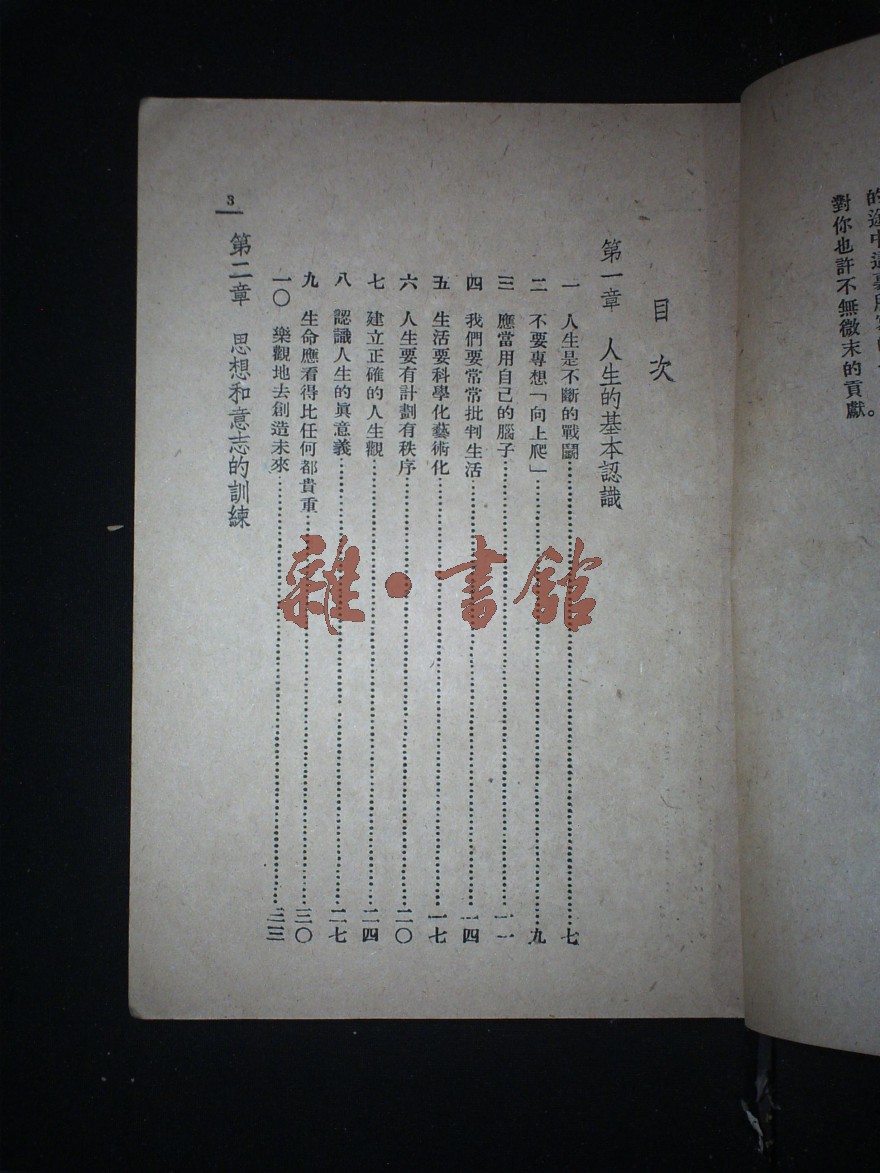 對你也許不無微末的貢獻。
目次
第一章 人生的基本認識
一 人生是不斷的戰鬭……七
二 不要專想「向上爬」……九
三 應當用自己的腦子……一一
四 我們要常常批判生活……一四
五 生活要科學化藝術化……一七
六 人生要有計劃有秩序……二〇
七 建立正確的人生觀……二四
八 認識人生的眞意義……二七
九 生命應看得比任何都貴重……三〇
一〇 樂觀地去創造未來……三三
第二章 思想和意志的訓練
3
雜·書館